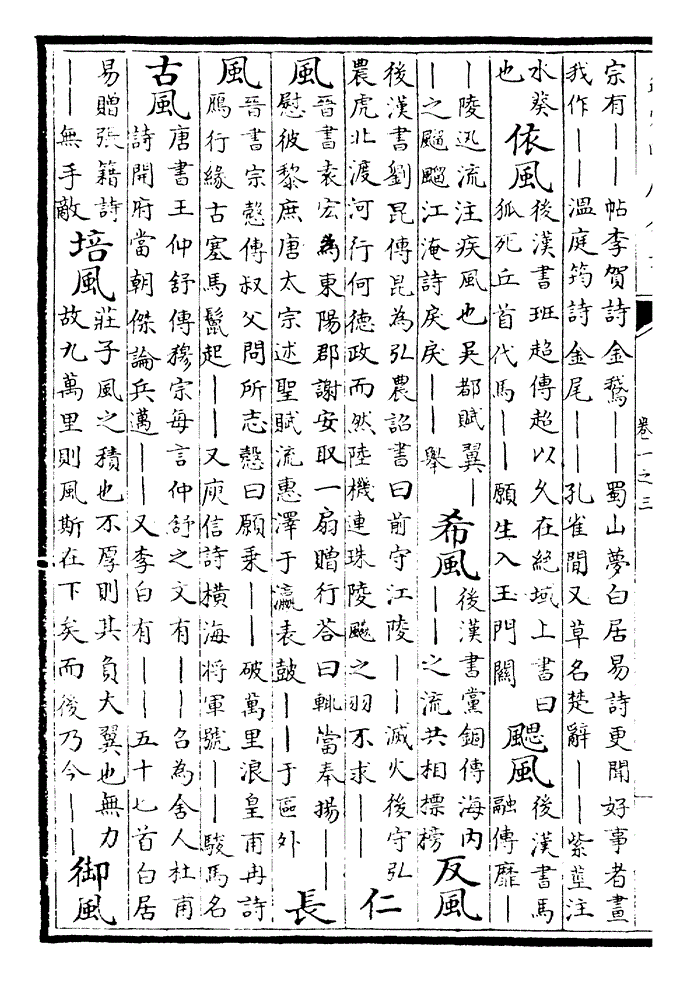 宗有――帖李賀詩金鵞――蜀山夢白居易詩更聞好事者畫
我作――溫庭筠詩金尾――孔雀閒又草名楚辭――紫莖注
水葵
也
依風
後漢書班超傳超以久在絕域上書曰
狐死丘首代馬――願生入玉門關
颸風
後漢書馬
融傳靡―
―陵迅流注疾風也吳都賦翼―
―之江淹詩戾戾――舉
希風
後漢書黨錮傳海内
――之流共相摽搒
反風
後漢書劉昆傳昆為弘農詔書曰前守江陵――滅火後守弘
農虎北渡河行何德政而然陸機連珠陵飈之羽不求――
仁
風
晉書袁宏為東陽郡謝安取一扇贈行荅曰輒當奉揚――
慰彼黎庶唐太宗述聖賦流惠澤于瀛表鼓――于區外
長
風
晉書宗慤傳叔父問所志慤曰願乘――破萬里浪皇甫冉詩
鴈行緣古塞馬鬛起――又庾信詩橫海将軍號――駿馬名
古風
唐書王仲舒傳穆宗每言仲舒之文有――召為舍人杜甫
詩開府當朝傑論兵邁――又李白有――五十七首白居
易贈張籍詩
――無手敵
培風
莊子風之積也不厚則其負大翼也無力
故九萬里則風斯在下矣而後乃今――
御風
卷二之三